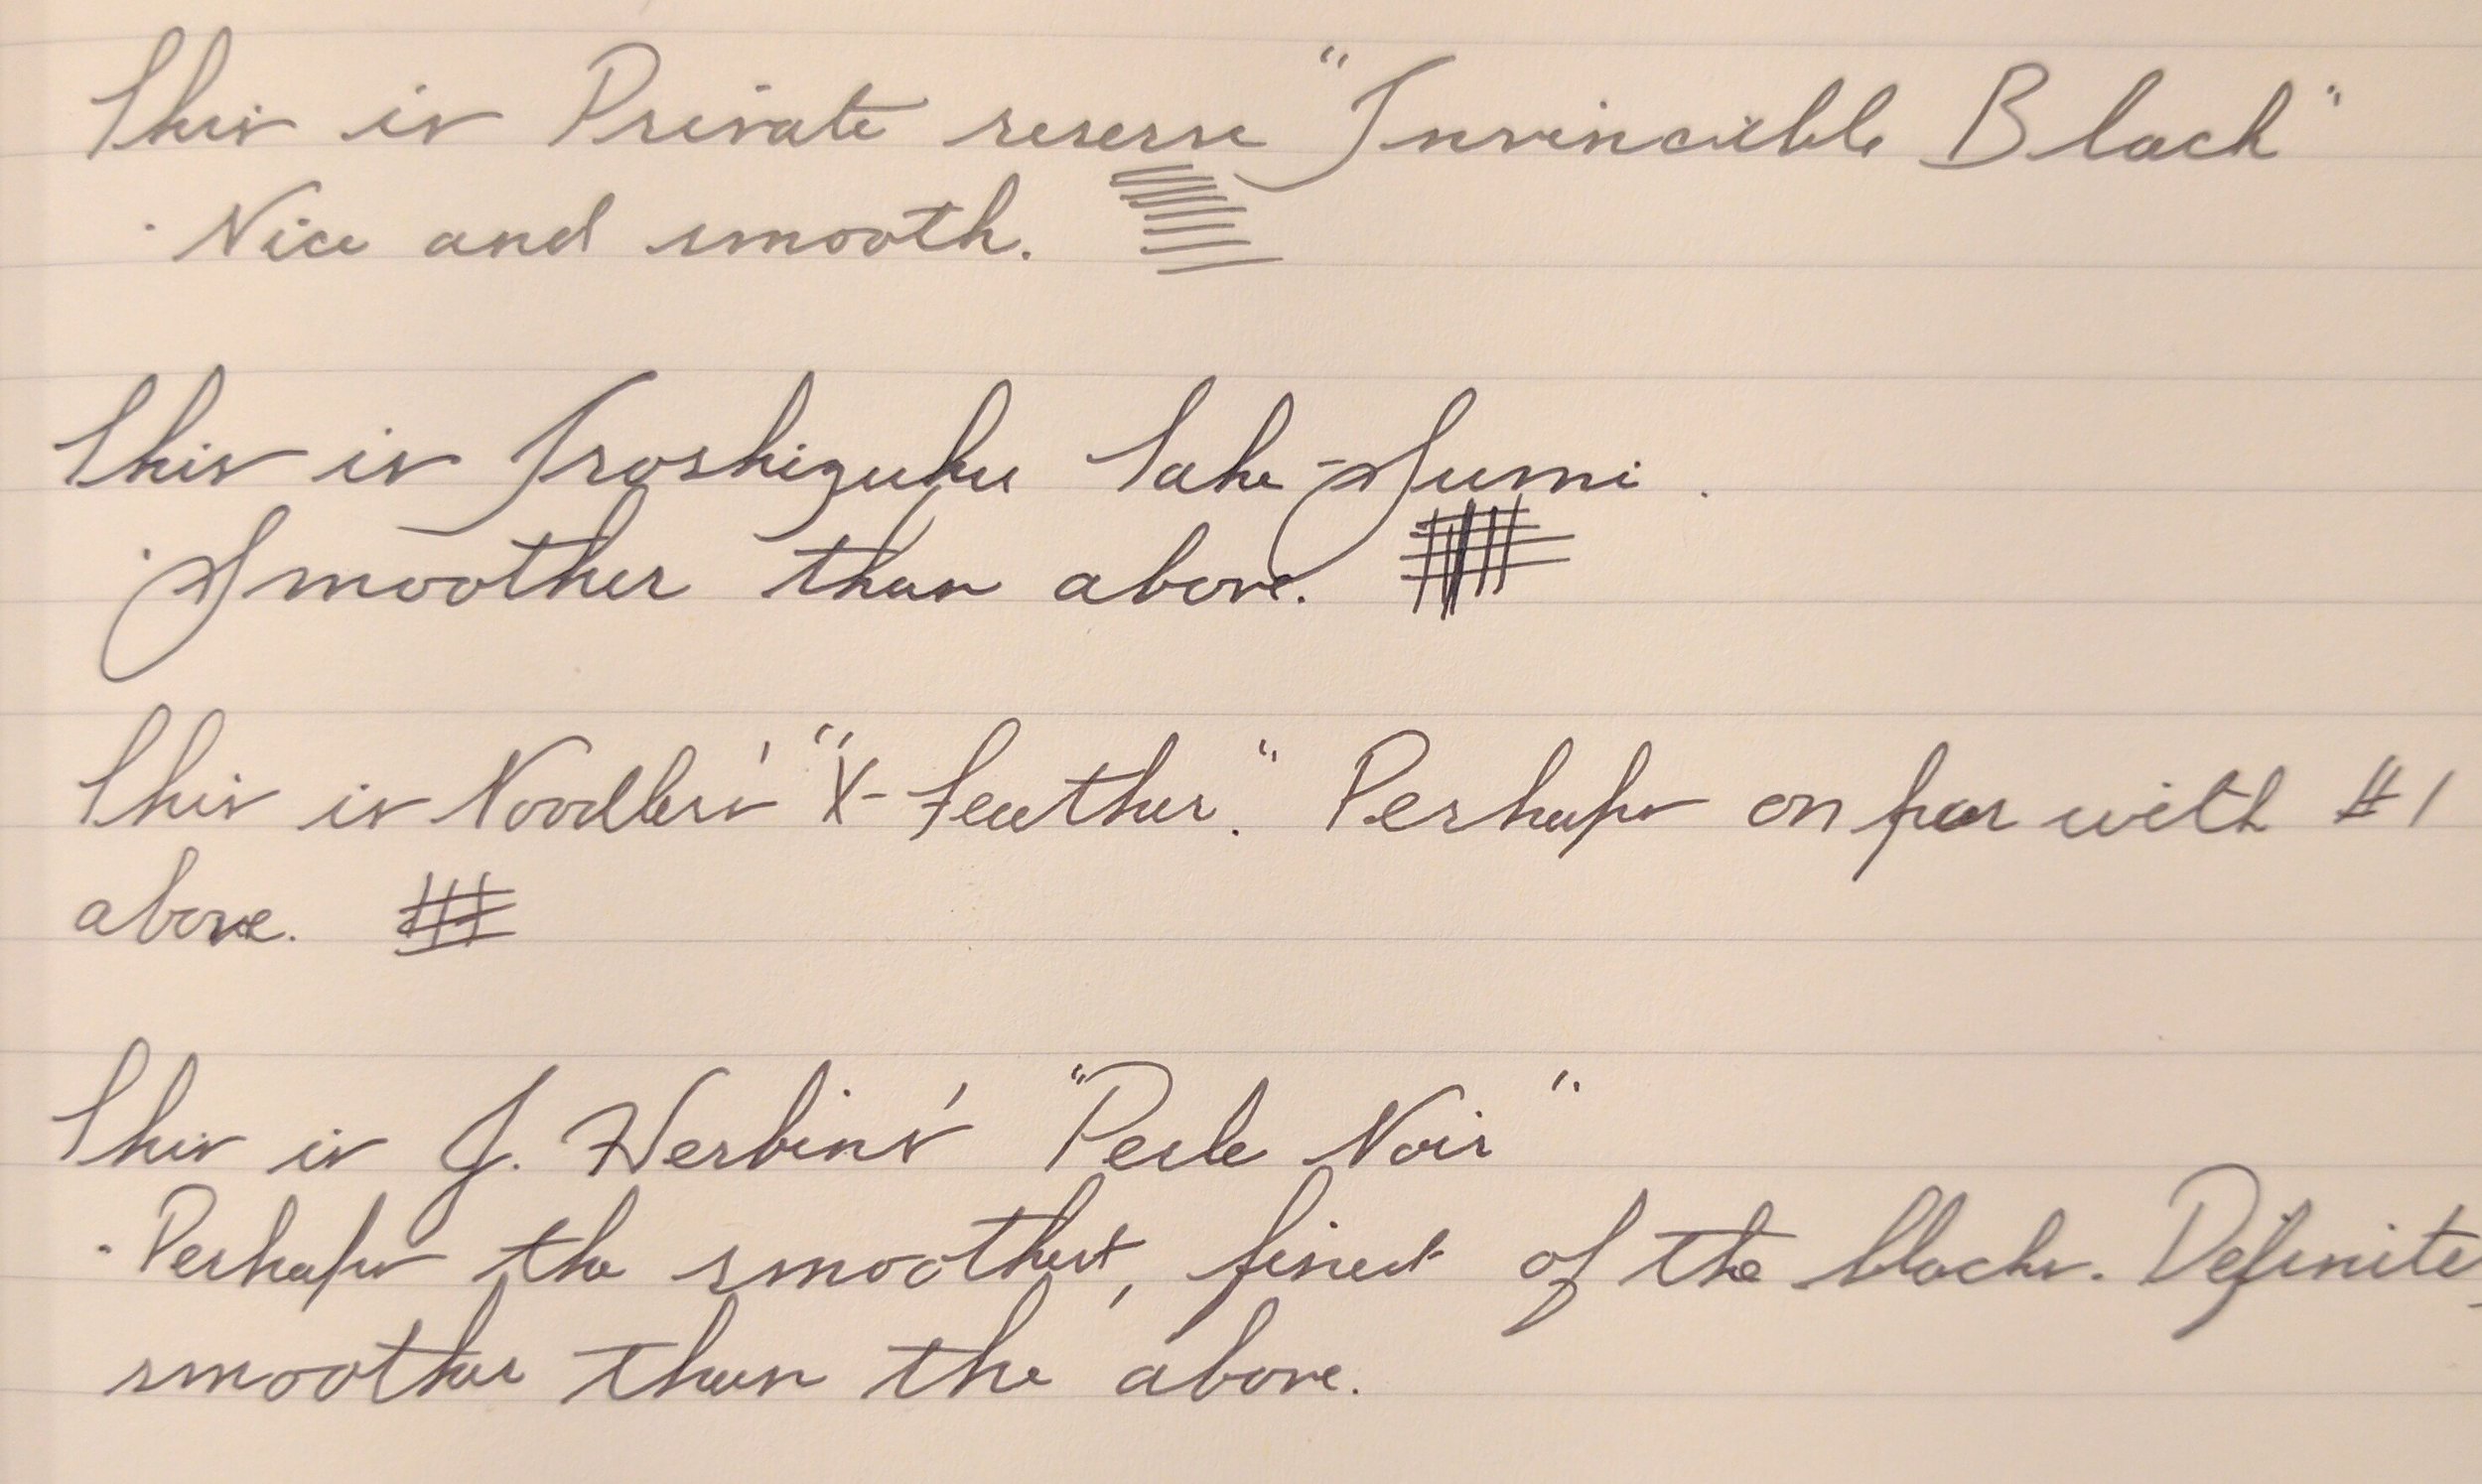 This is Private reserve "Invincible Black"
· Nice and smooth.
This is Iroshizuku Take-Sumi.
· Smoother than above.
This is Noodlers' "X-Feather." Perhaps on par with #1
above.
This is J. Herbin's "Perle Noir"
· Perhaps the smoothest, finest of the blacks. Definite
smoother than the above.